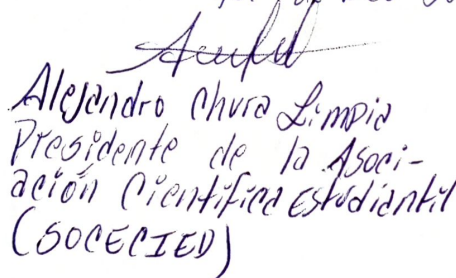 Alejandro Chura Limpia
Presidente de la Asoci-
ación Científica Estudiantil
(SOCECIED)